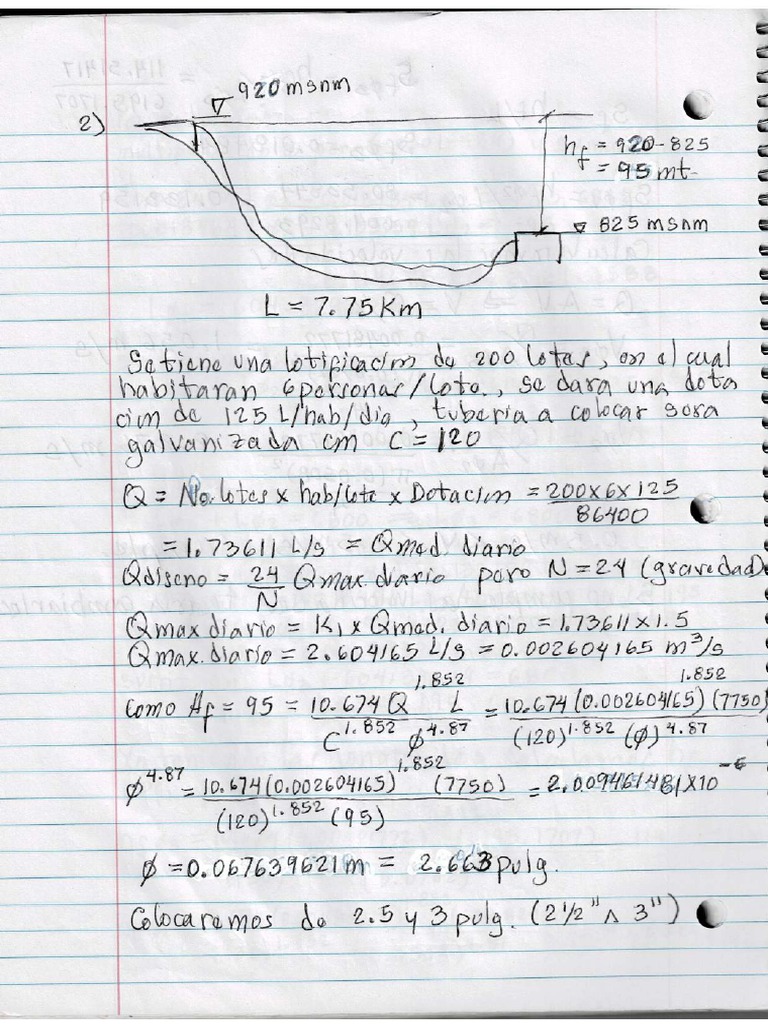 920 msnm
2)
hf = 920-825
= 95 mt.
825 msnm
L = 7.75 Km
Se tiene una lotificacion de 200 lotes, en el cual
habitaran 6 personas/lote., se dara una dota
cion de 125 L/hab/dia, tuberia a colocar sera
galvanizada con C = 120
Q = No. lotes x hab/lote x Dotacion = 200x6x125 / 86400
= 1.73611 L/s = Qmed. diario
Qdiseno = 24/N Qmax. diario pero N = 24 (gravedad)
Qmax diario = K1 x Qmed. diario = 1.73611 x 1.5
Qmax. diario = 2.604165 L/s = 0.002604165 m³/s
como Hf = 95 = 10.674 Q^1.852 L / C^1.852 ø^4.87 = 10.674 (0.002604165)^1.852 (7750) / (120)^1.852 (ø)^4.87
ø^4.87 = 10.674 (0.002604165)^1.852 (7750) / (120)^1.852 (95) = 2.009461481x10^-6
ø = 0.067639621 m = 2.663 pulg.
Colocaremos de 2.5 y 3 pulg. (2 1/2" ^ 3")